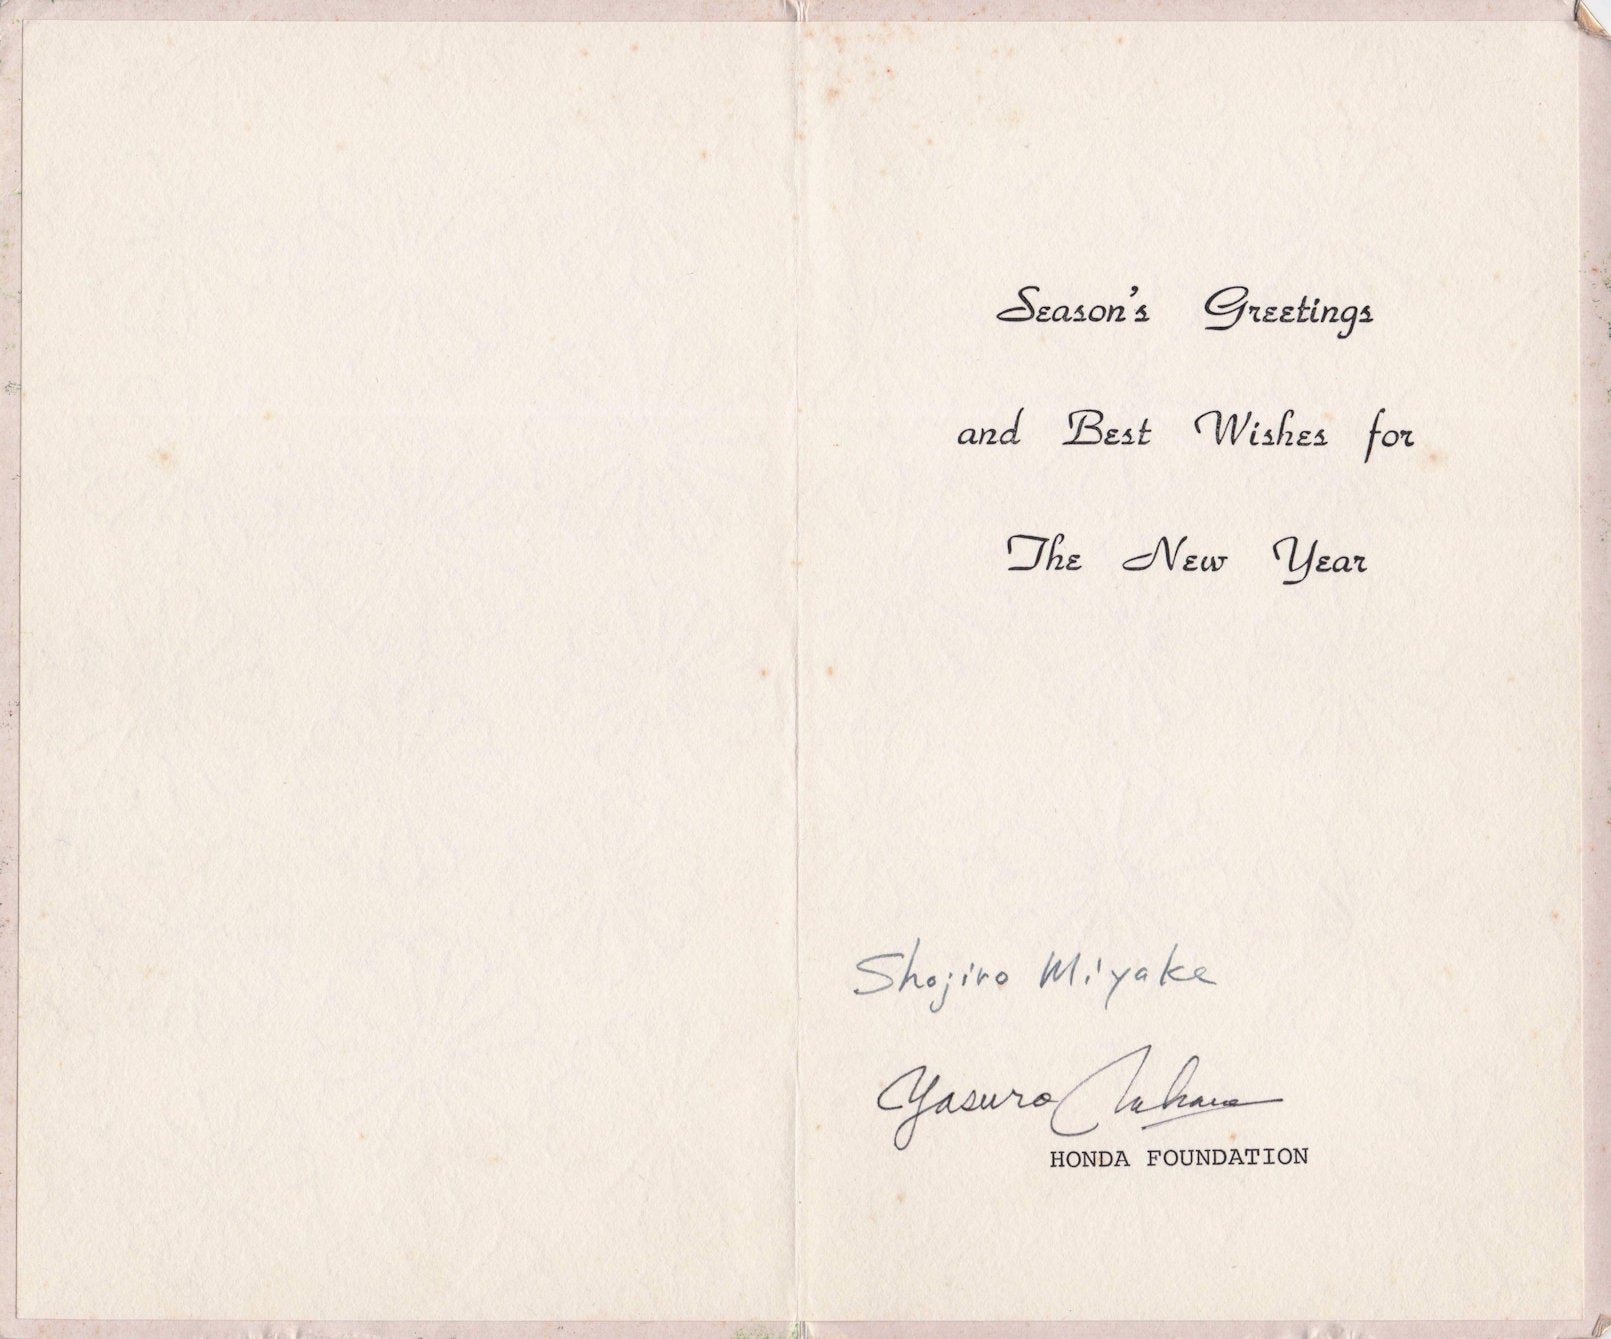 Season's Greetings
and Best Wishes for
The New Year
Shojiro Miyake
Yasuro
HONDA FOUNDATION